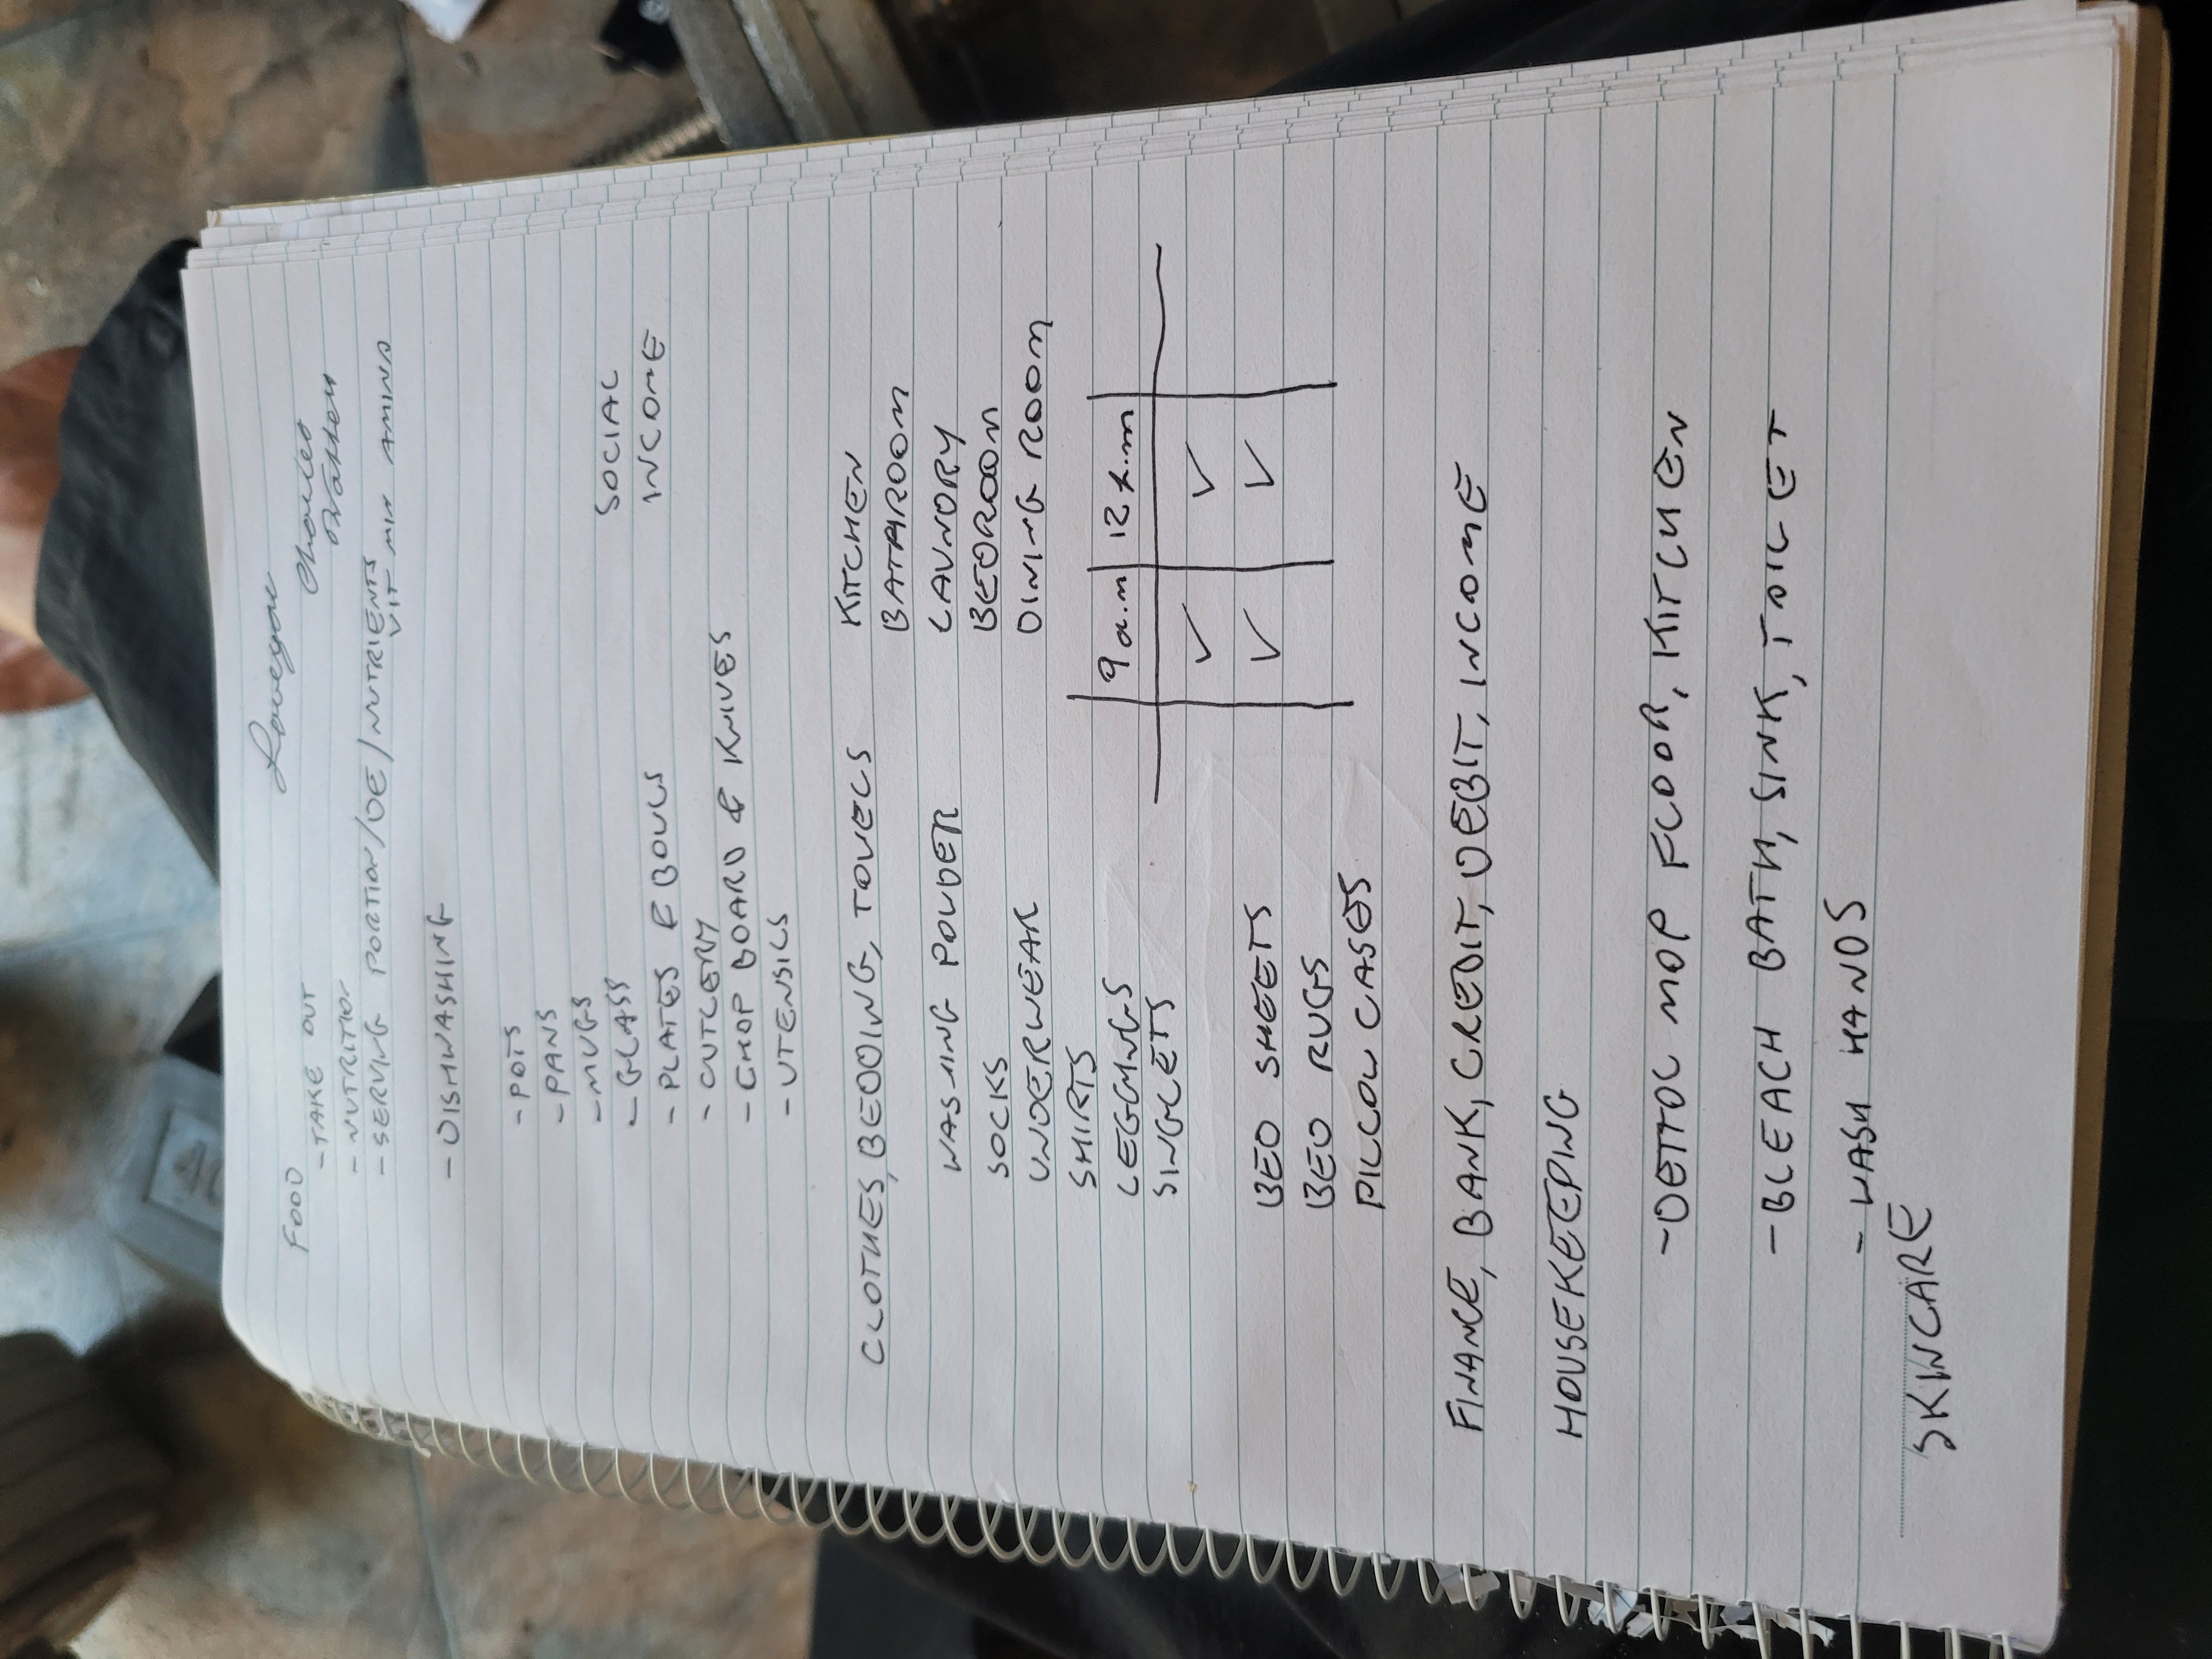 FOOD
- TAKE OUT
- NUTRITION
- SERVING PORTION/DE/NUTRIENTS
VIT MIN AMINO
Love you
Charles
- DISHWASHING
- POTS
- PANS
- MUGS
- GLASS
- PLATES & BOWLS
- CUTLERY
- CHOP BOARD & KNIVES
- UTENSILS
SOCIAL
INCOME
CLOTHES, BEDDING, TOWELS
WASHING POWDER
SOCKS
UNDERWEAR
SHIRTS
LEGGINGS
SINGLETS
BED SHEETS
BED RUGS
PILLOW CASES
KITCHEN
BATHROOM
LAUNDRY
BEDROOM
DINING ROOM
9 a.m 12 p.m
✓ ✓
✓ ✓
FINANCE, BANK, CREDIT, DEBIT, INCOME
HOUSEKEEPING
- DETTOL MOP FLOOR, KITCHEN
- BLEACH BATH, SINK, TOILET
- WASH HANDS
SKINCARE